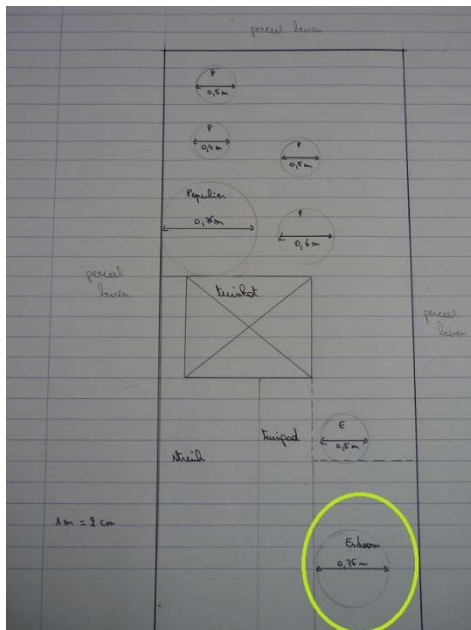 perceel buren
P
0,5m
P
0,4m
P
0,5m
Populier
0,75m
P
0,6m
perceel
buren
tuinhok
perceel
buren
E
0,5m
tuinpad
struik
1m = 2cm
Esdoorn
0,75m